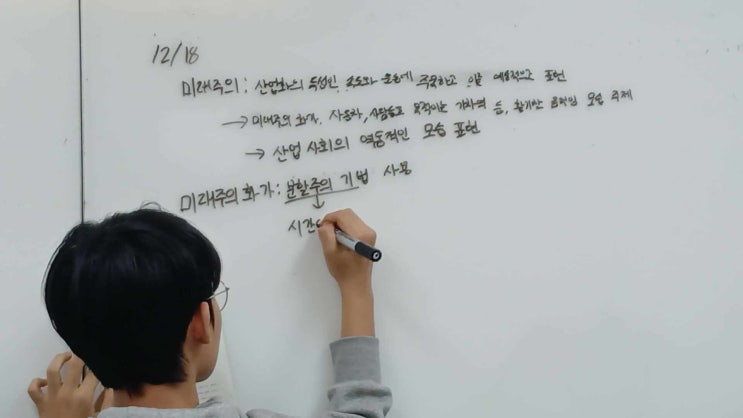 12/18
미래주의 : 산업화의 특성인 속도와 운동에 주목하고 이를 예술적으로 표현
→ 미래주의 화가, 자동차, 사람들로 북적이는 기차역 등, 활기찬 움직임 모습 주제
→ 산업 사회의 역동적인 모습 표현
미래주의 화가 : 분할주의 기법 사용
↓
시간